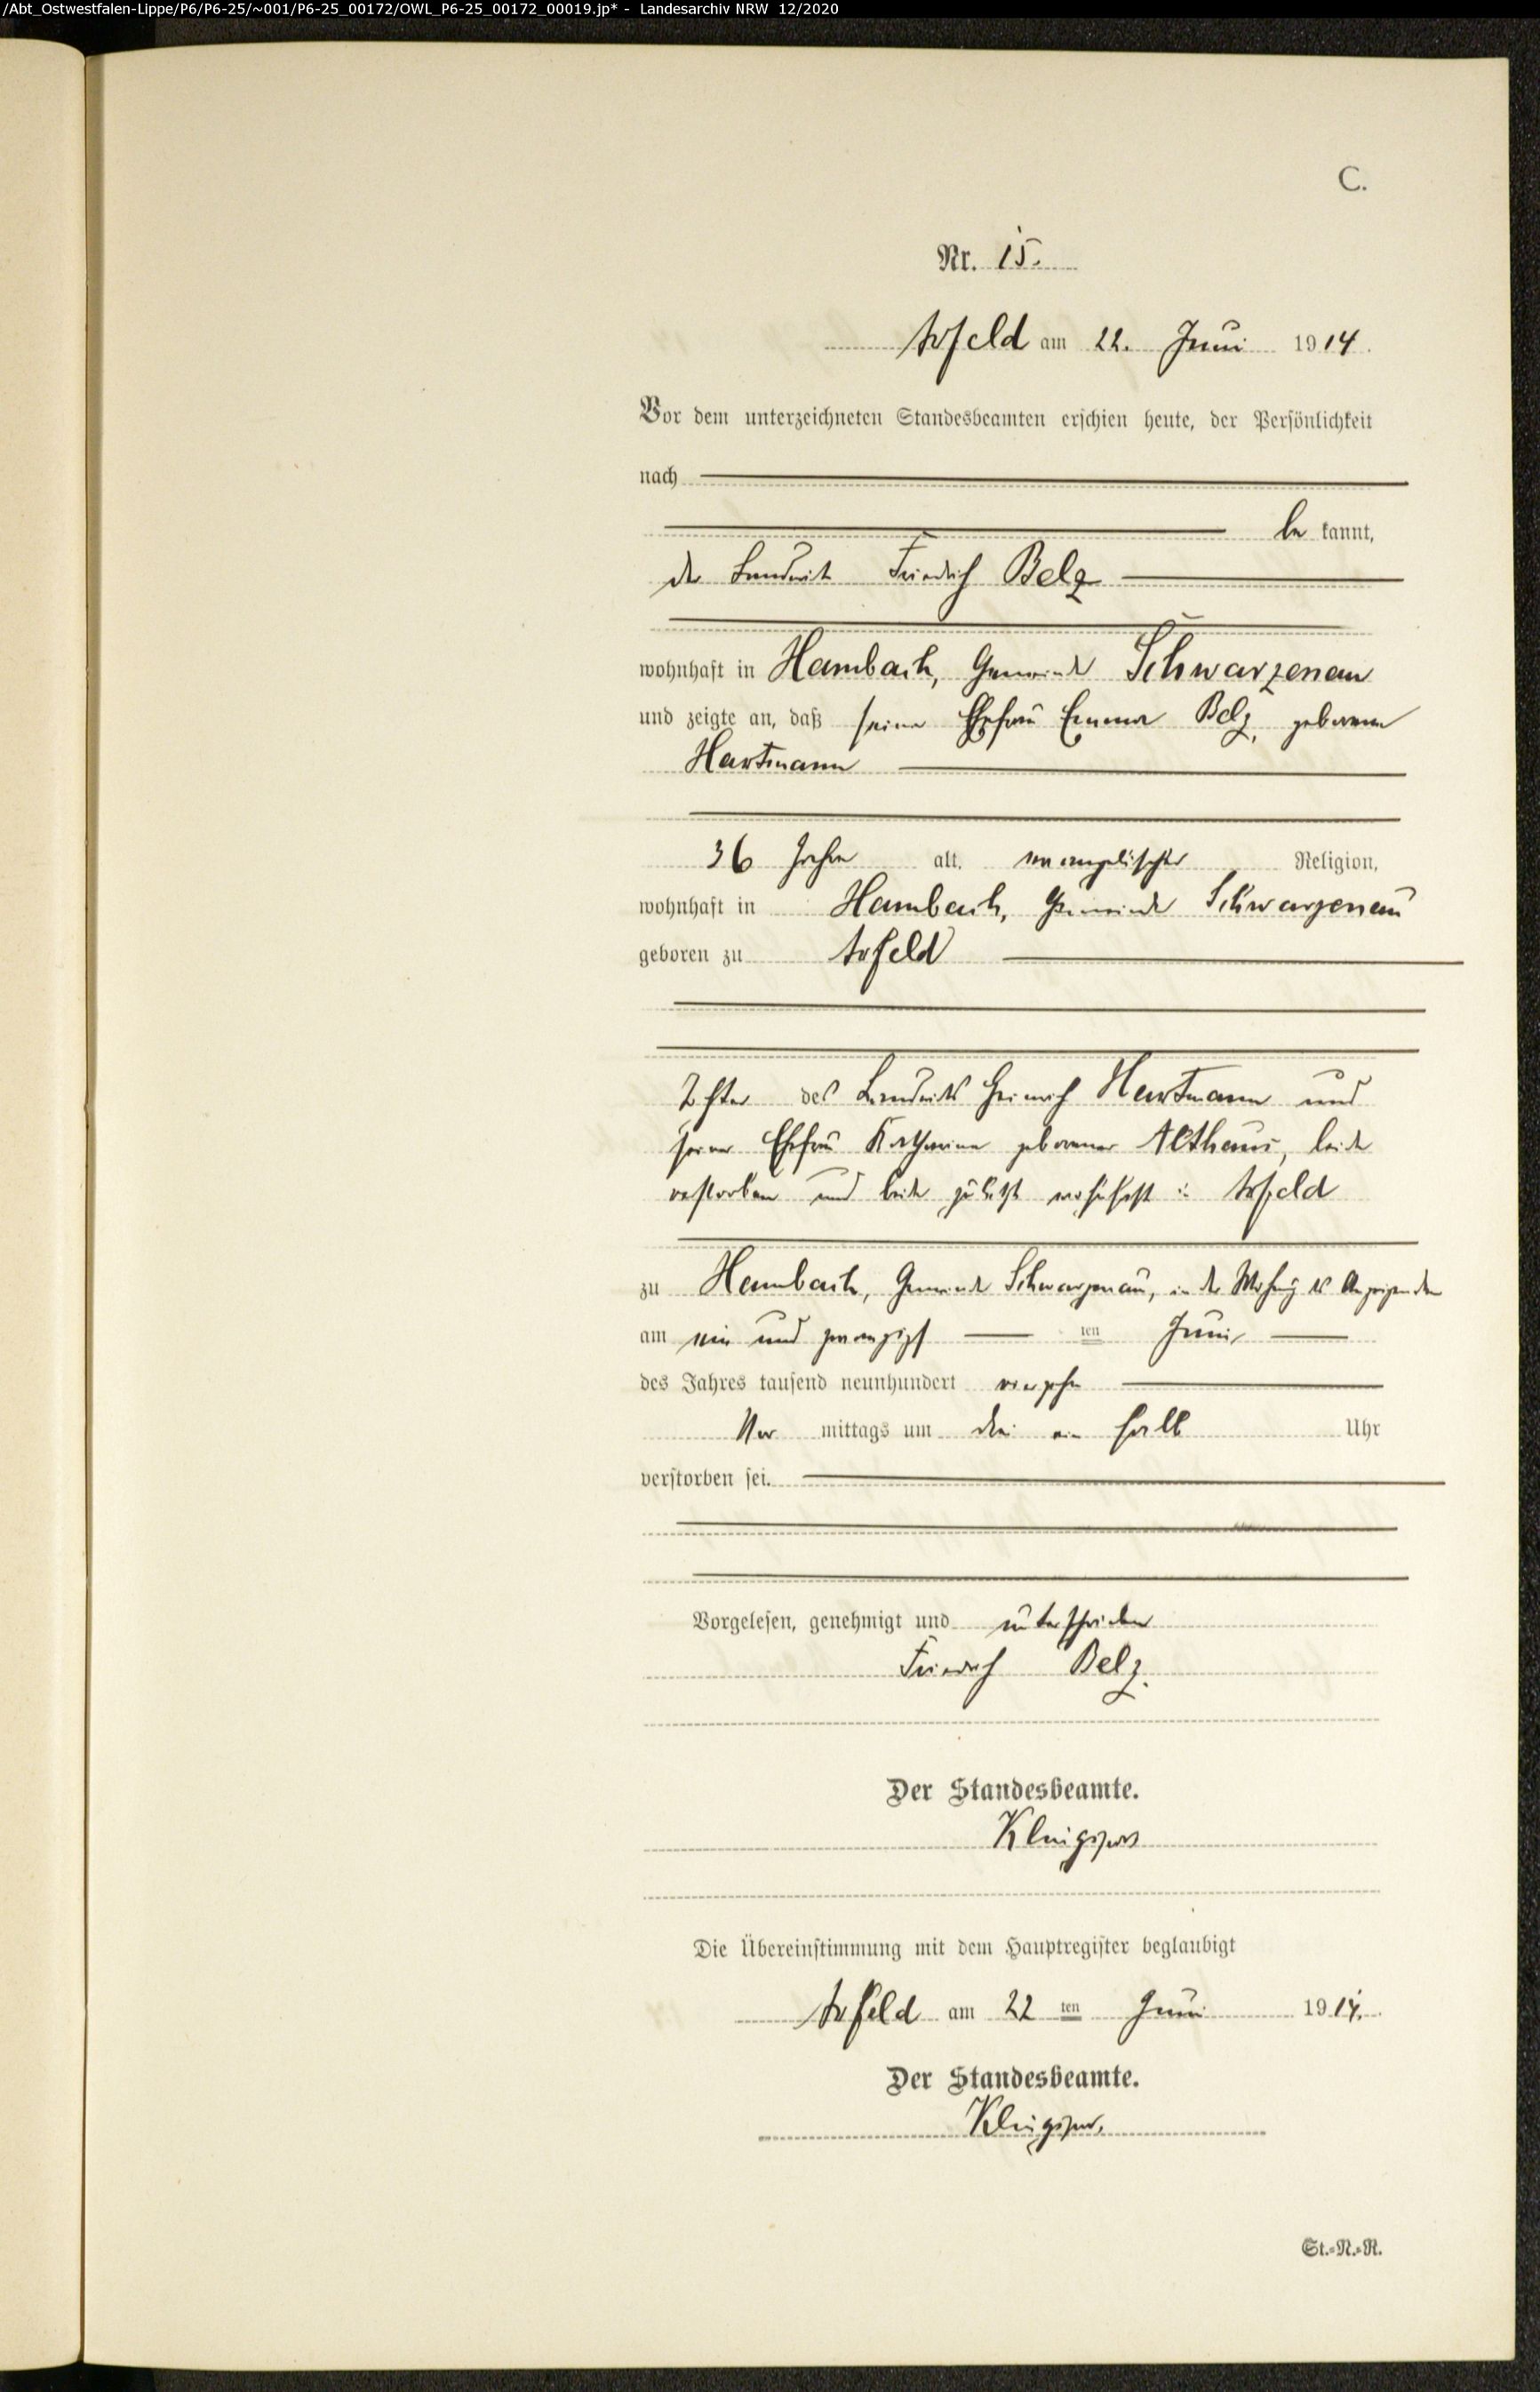 /Abt_Ostwestfalen-Lippe/P6/P6-25/~001/P6-25_00172/OWL_P6-25_00172_00019.jp* - Landesarchiv NRW 12/2020
C.
Nr. 15.
Arfeld am 22. Juni 1914.
Vor dem unterzeichneten Standesbeamten erschien heute, der Persönlichkeit
nach
be kannt,
der Landwirt Friedrich Belz
wohnhaft in Hambach, Gemeinde Schwarzenau
und zeigte an, daß seine Ehefrau Emma Belz, geborene
Hartmann
36 Jahre alt, evangelischer Religion,
wohnhaft in Hambach, Gemeinde Schwarzenau
geboren zu Arfeld
Tochter des Landwirts Heinrich Hartmann und
seiner Ehefrau Katharine geborener Althaus, beide
verstorben und beide zuletzt wohnhaft in Arfeld
zu Hambach, Gemeinde Schwarzenau, in der Wohnung des Anzeigenden
am ein und zwanzigsten Juni
des Jahres tausend neunhundert vierzehn
Vor mittags um drei ein halb Uhr
verstorben sei.
Vorgelesen, genehmigt und unterschrieben
Friedrich Belz.
Der Standesbeamte.
Klingspor
Die Übereinstimmung mit dem Hauptregister beglaubigt
Arfeld am 22 ten Juni 1914.
Der Standesbeamte.
Klingspor.
St.-N.-R.